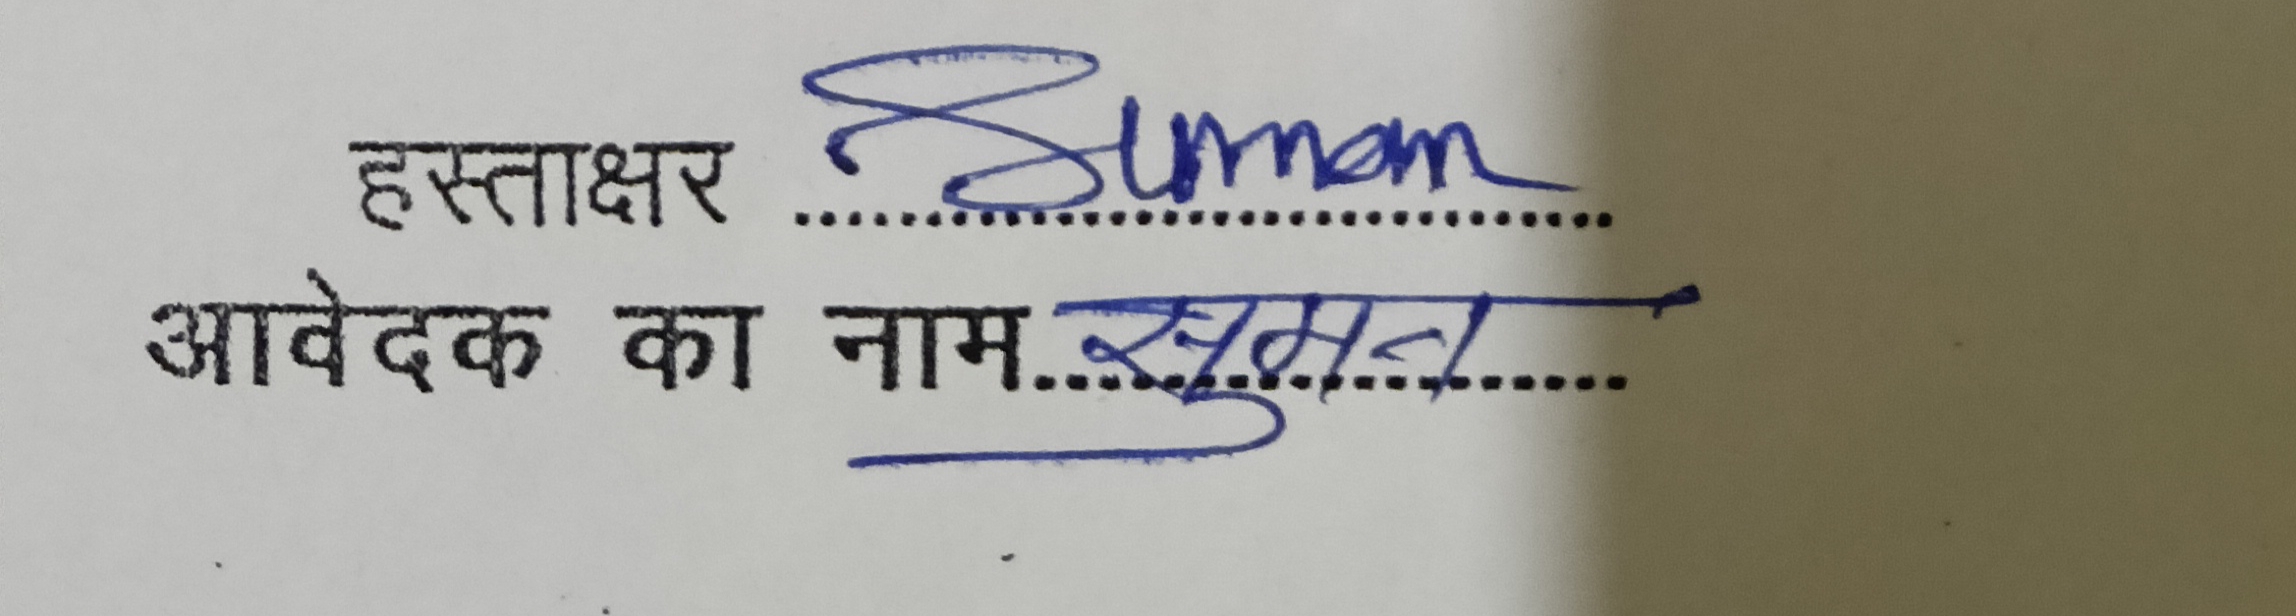 हस्ताक्षर Suman
आवेदक का नाम सुमन